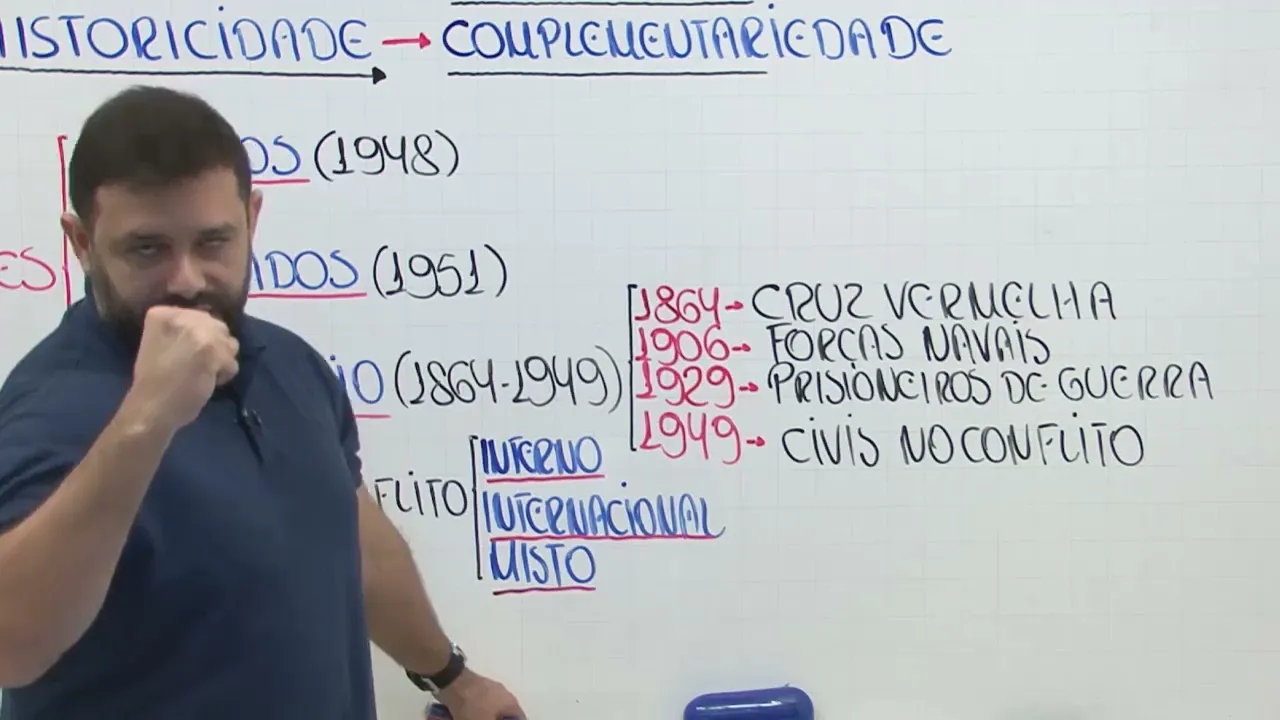 ISTORICIDADE → COMPLEMENTARIEDADE
OS (1948)
ES
DOS (1951)
1864 → CRUZ VERMELHA
1906 → FORÇAS NAVAIS
IO (1864-1949)
1929 → PRISIONEIROS DE GUERRA
1949 → CIVIS NO CONFLITO
FLITO
INTERNO
INTERNACIONAL
MISTO